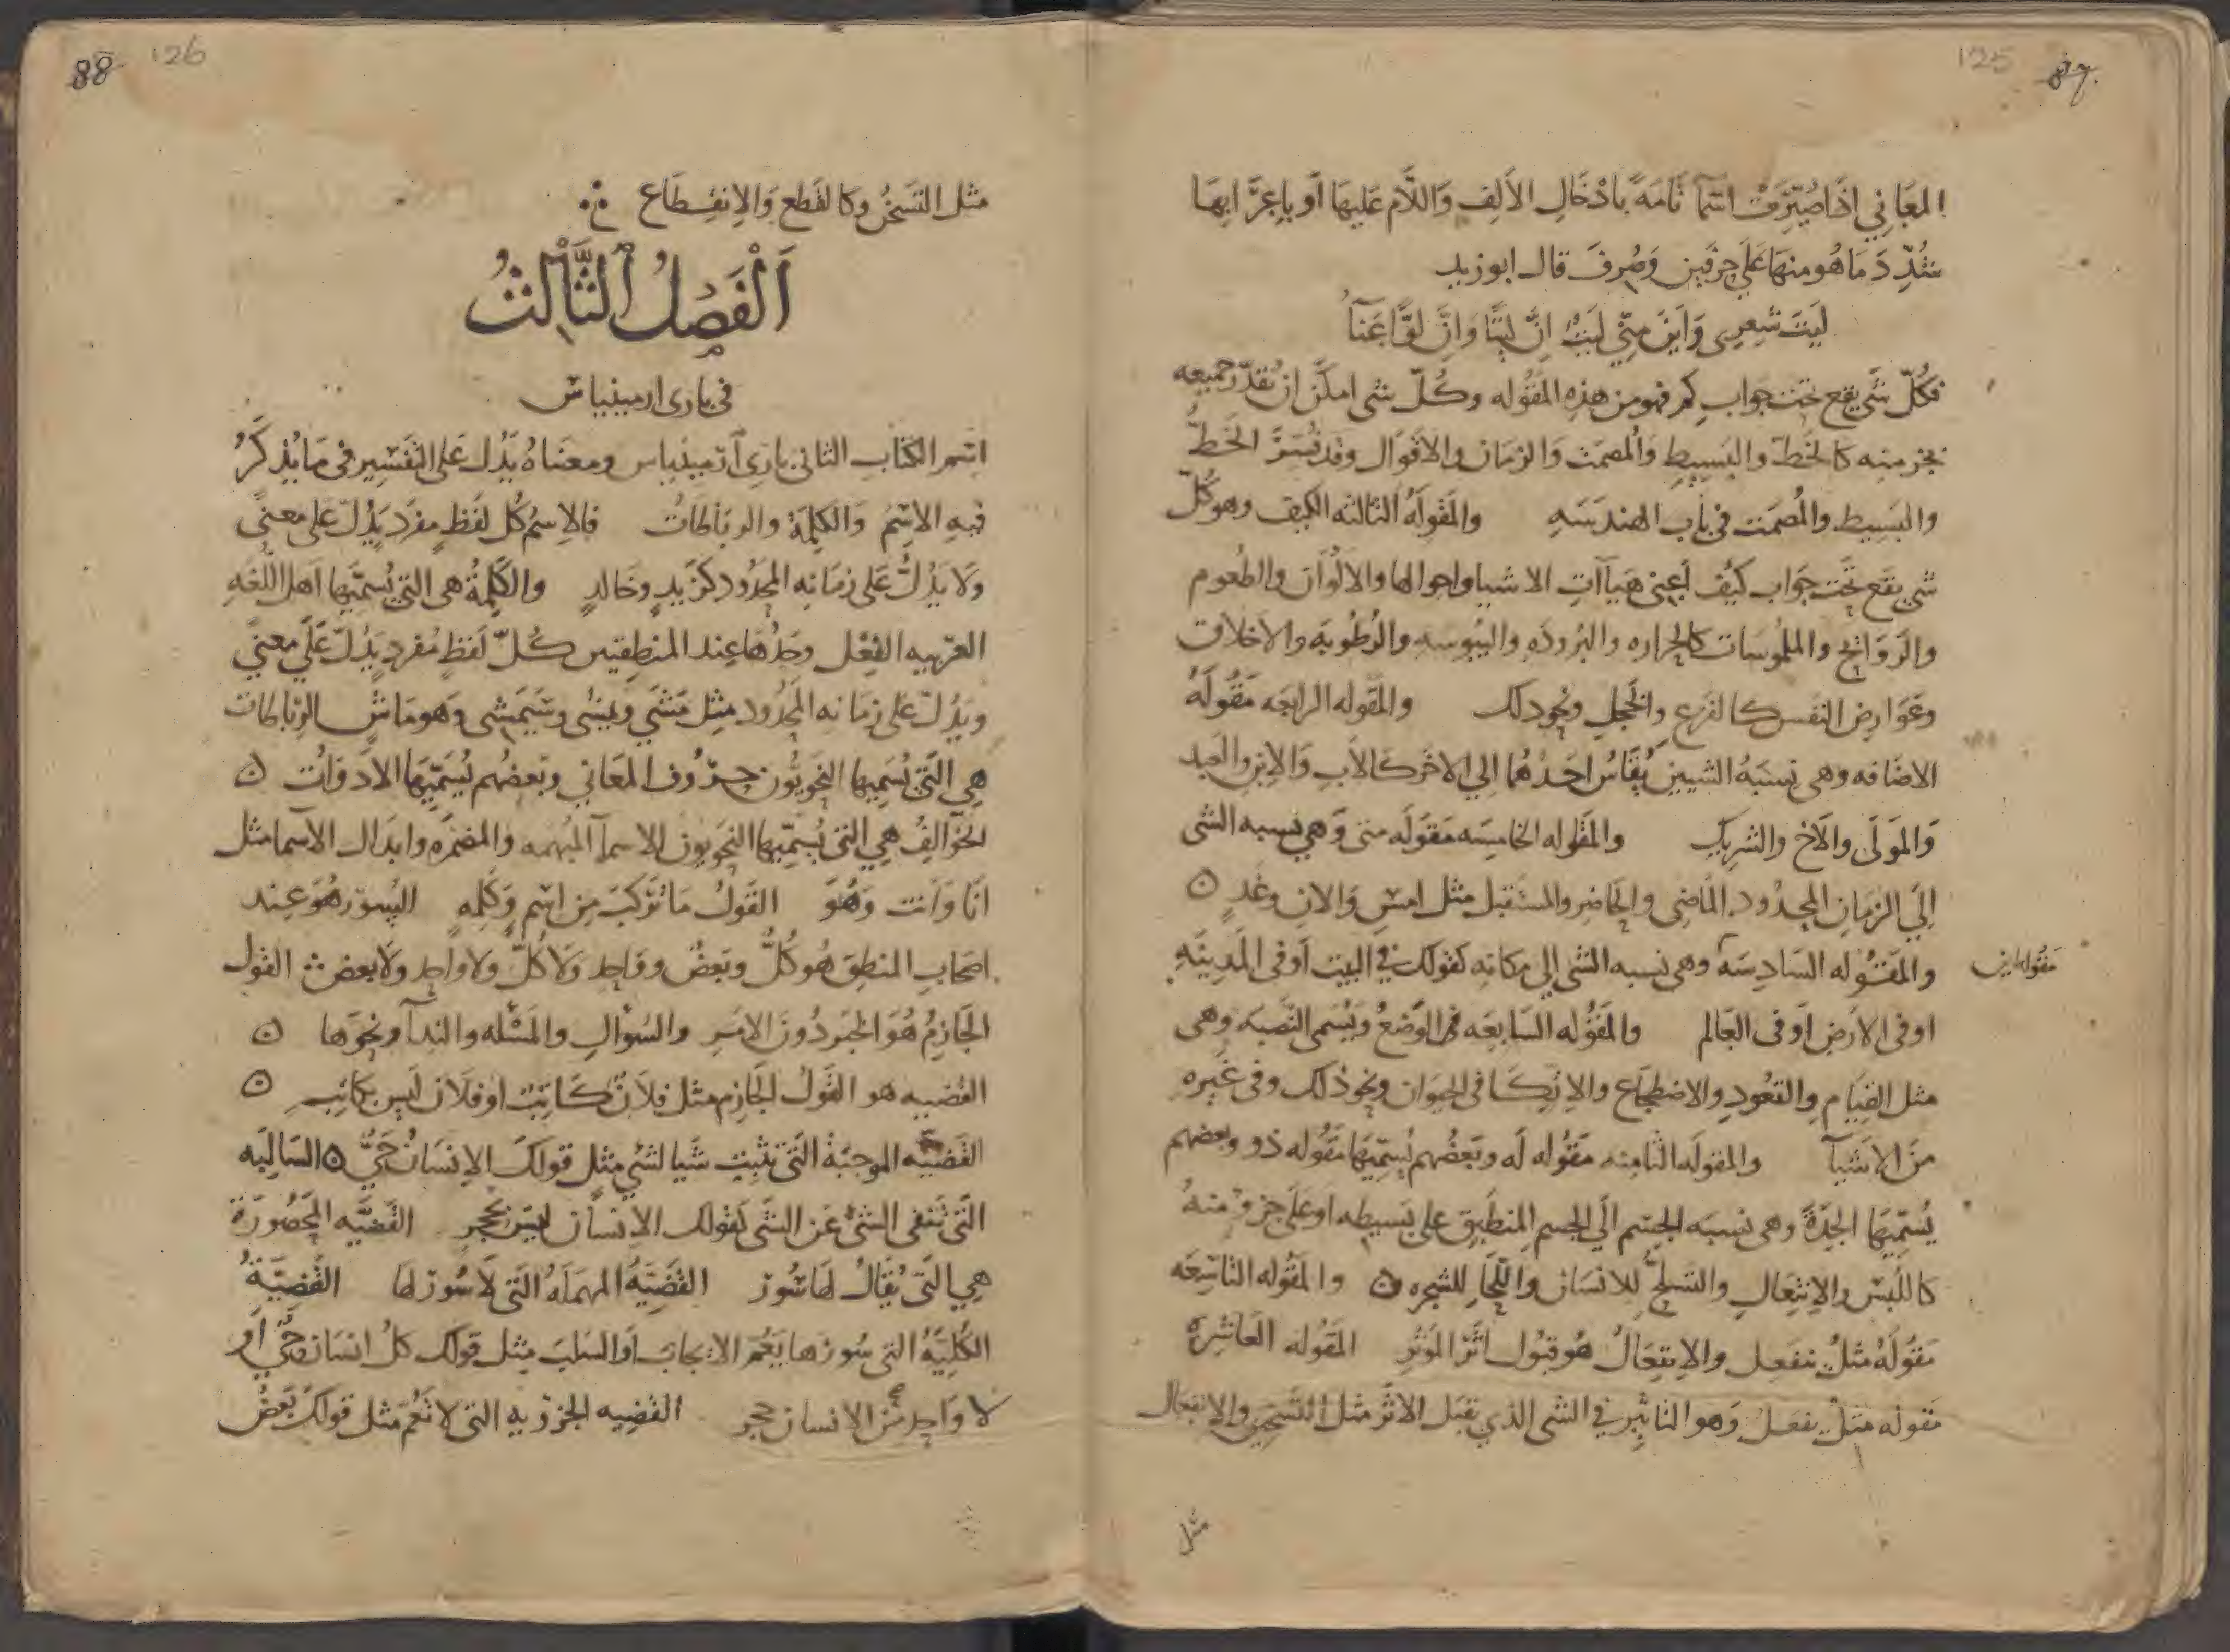 125 87
المعاني اذا صُيّرت اسمًا تامةً بادْخَالِ الأَلِف وَاللّام عَليهَا أو باِعرَابهَا
شُدِّدَ مَا هُو منهَا عَلَى حرفين وَصُرفَ قال ابو زيد
لَيتَ شعِرى وَأينَ مِنّي لَيتُ اِنَّ ليتًا وَانّ لوًّا عَنآءُ
فكُلّ شَىٍ يقع تحت جوابِ كم فهو من هذهِ المَقُوله وكُلّ شى امكَن ان يُقدّر جميعه
بجزٍ منه كالخَطّ والبَسِيطِ وَالمُصمَت وَالزمَان والاقوَال وقد فُسِّرَ الخَطُّ
والبَسِيط والمُصمَت في باب الهندَسَهِ والمَقولَهُ الثالثه الكيف وهو كُلّ
شىٍ يقَع تَحْت جَوَاب كَيْف أعِنى هَيَآتِ الاشيا واحوالها والالْوَان والطُعوم
والرَوَائِح والملمُوسَات كالحراره والبُرودَهِ واليُبوسه والرُطُوبَه والاخلاق
وعَوَارِض النفس كالفَزعِ والخَجلِ ونحو ذلك والمَقوله الرابعَه مَقُولَهُ
الاضَافه وهى نسبَهُ الشيين يُقَاسُ احَدُهُما الي الاخر كالأبِ وَالابن والعَبد
وَالمَولَى والأخ والشريكِ والمَقُوله الخامسَه مَقولَه متى وَهى نسبه الشى
اِلَي الزمَانِ المحدُود الماضِى والحَاضر والمستقبل مثل امسِ وَالان وغدٍ ٥
والمَقُوله السَادِسَه وهى نسبه الشى اِلي مكانه كقولك في البيت أو في المَدِينَهِ
مَقوله اين
او في الارضِ أو في العَالم والمَقُوله السَابعَه هى الوَضعُ ويُسمى النُصبَه وهى
مثل القيَام والقعُودِ والاضطجَاع والاِتكَا في الحيوان ونحو ذلك وفى غَيرهِ
مِنَ الاَشيآ والمقولَه الثامنه مَقُوله لَه وبَعضُهم يُسمّيَهَا مَقُوله ذو وبعضهم
يُسَمّيهَا الجِدَةَ وهى نسبَه الجسم الَي الجسم المنطَبِق على بَسيطه او عَلَى جزوٍ منهُ
كاللُبسِ والاِنتِعَالِ والتسلُّحِ للانسَان واللّحَاءِ للشجره ٥ والمَقُوله التاسِعَه
مَقُولَهُ مثلُ ينفَعِل والاِنفعَالُ هُو قبُول اثَر المُوثر المَقُوله العَاشِره
مَقوله مثلُ يفعَل وَهو التاثِير في الشى الذي يقبَل الاثَر مثل التَسخِين والاِنفعال
مثل
88 126
مثل التسَخُن وكالقَطع وَالاِنقِطَاع
اَلْفَصْلُ الثَّالِثُ
في بارى ارمينياس
اسْم الكتابِ الثانى بارى آرمينياس ومعنَاهُ يَدُل عَلى التفسِير فى مَا يُذكَرُ
فيهِ الاِسمُ وَالكلِمَة والرباطَاتُ فالاِسمُ كُل لفظٍ مفرَدٍ يَدُلّ عَلى معنىً
وَلَا يَدُلُّ عَلى زمَانِه المحدُود كزَيدٍ وخَالدٍ والكَلِمةُ هى التى يُسمّيَها اَهل اللُغَهِ
العرَبيه الفِعْل وحَدُّهَا عِند المنطِقيين كُلّ لَفظٍ مُفردٍ يَدُلّ عَلَى معنىً
ويَدُلّ عَلى زمَانهِ المحدُود مثِل مَشَي ويمشى وسَيَمشى وَهو مَاشٍ الرِباطات
هِى الَّتى يُسَمِيها النحَوِيُّون حُرُوف المعَانى وبَعضُهم يُسَمّيهَا الأدَوَات ٥
الخَوَالِفُ هِي التى يُسمِّيها النحويون الاسمآ المُبهمه والمضمَرَه وابدَال الأسما مثل
انَا وَأنت وَهُوَ القَولُ مَا تَركّبَ مِن اسْمٍ وَكلِمهٍ السُور هُوَ عِند
اصحَابِ المنطِق هُو كُلُّ وبَعضٌ وواحِد وَلَا كُلّ ولا واحِد وَلَا بعض القول
الجَازِمُ هُوَ الخبَر دُونَ الامَرِ والسُؤالِ والمَسْئَله والندآ ونحوَها ٥
القضيه هو القَولُ الجَازم مثل فلَانٌ كَاتِبٌ او فلَان لَيس بكاتِبٍ ٥
القَضيّه الموجبَة الّتى تثبِت شَيا لشَىٍ مثِل قولكَ الاِنسَانُ حَيٌّ ٥ السَالِبَه
الَّتى تَنفى الشى عَن الشَى كقولك الاِنسان ليسَ بحَجرٍ القَضِيَّه المَحصُورَة
هِي التى يُقَالُ لهَا سُور القضِيَّهُ المهمَلهُ التى لَا سُور لها القَضِيَّةُ
الكُليَّهُ التى سُورهَا يَعُم الايجابَ أو السَلبَ مثِل قولك كلُ انسَان حَيٌّ أو
لا واحد مِن الانسان حجر القضِيه الجزويه التى لا تعُمُ مثل قولك بَعضُ